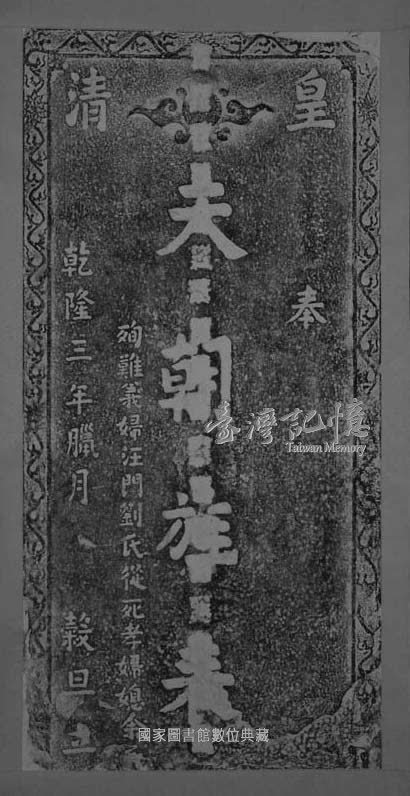 皇
清
奉
天朝旌表
殉難義婦汪門劉氏從死孝婦媳余
乾隆三年臘月
穀旦立
臺灣記憶
Taiwan Memory
國家圖書館數位典藏